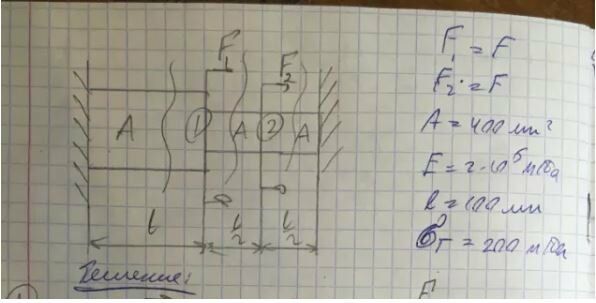 F₁ F₂
A ① A ② A
l l/2 l/2
Решение:
F₁ = F
F₂ = F
A = 400 мм²
E = 2·10⁵ мПа
l = 100 мм
σт = 200 мПа
F